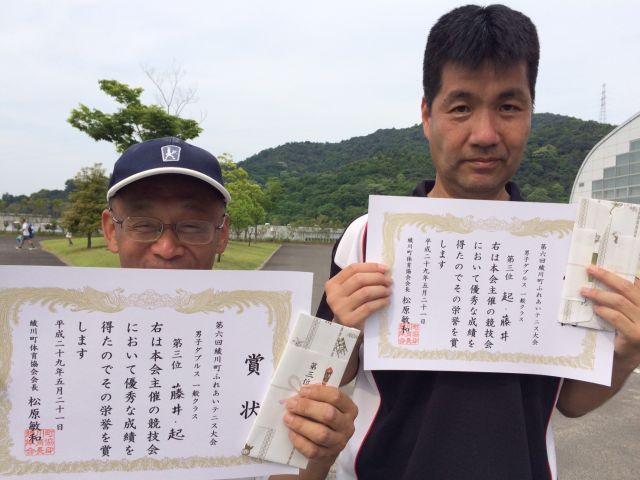 賞状
第六回綾川町ふれあいテニス大会
男子ダブルス 一般クラス
第三位 藤井・起
右は本会主催の競技会
において優秀な成績を
得たのでその栄誉を賞
します
平成二十九年五月二十一日
綾川町体育協会会長 松原敏和
第三位
第六回綾川町ふれあいテニス大会
男子ダブルス 一般クラス
第三位 起・藤井
右は本会主催の競技会
において優秀な成績を
得たのでその栄誉を賞
します
平成二十九年五月二十一日
綾川町体育協会会長 松原敏和